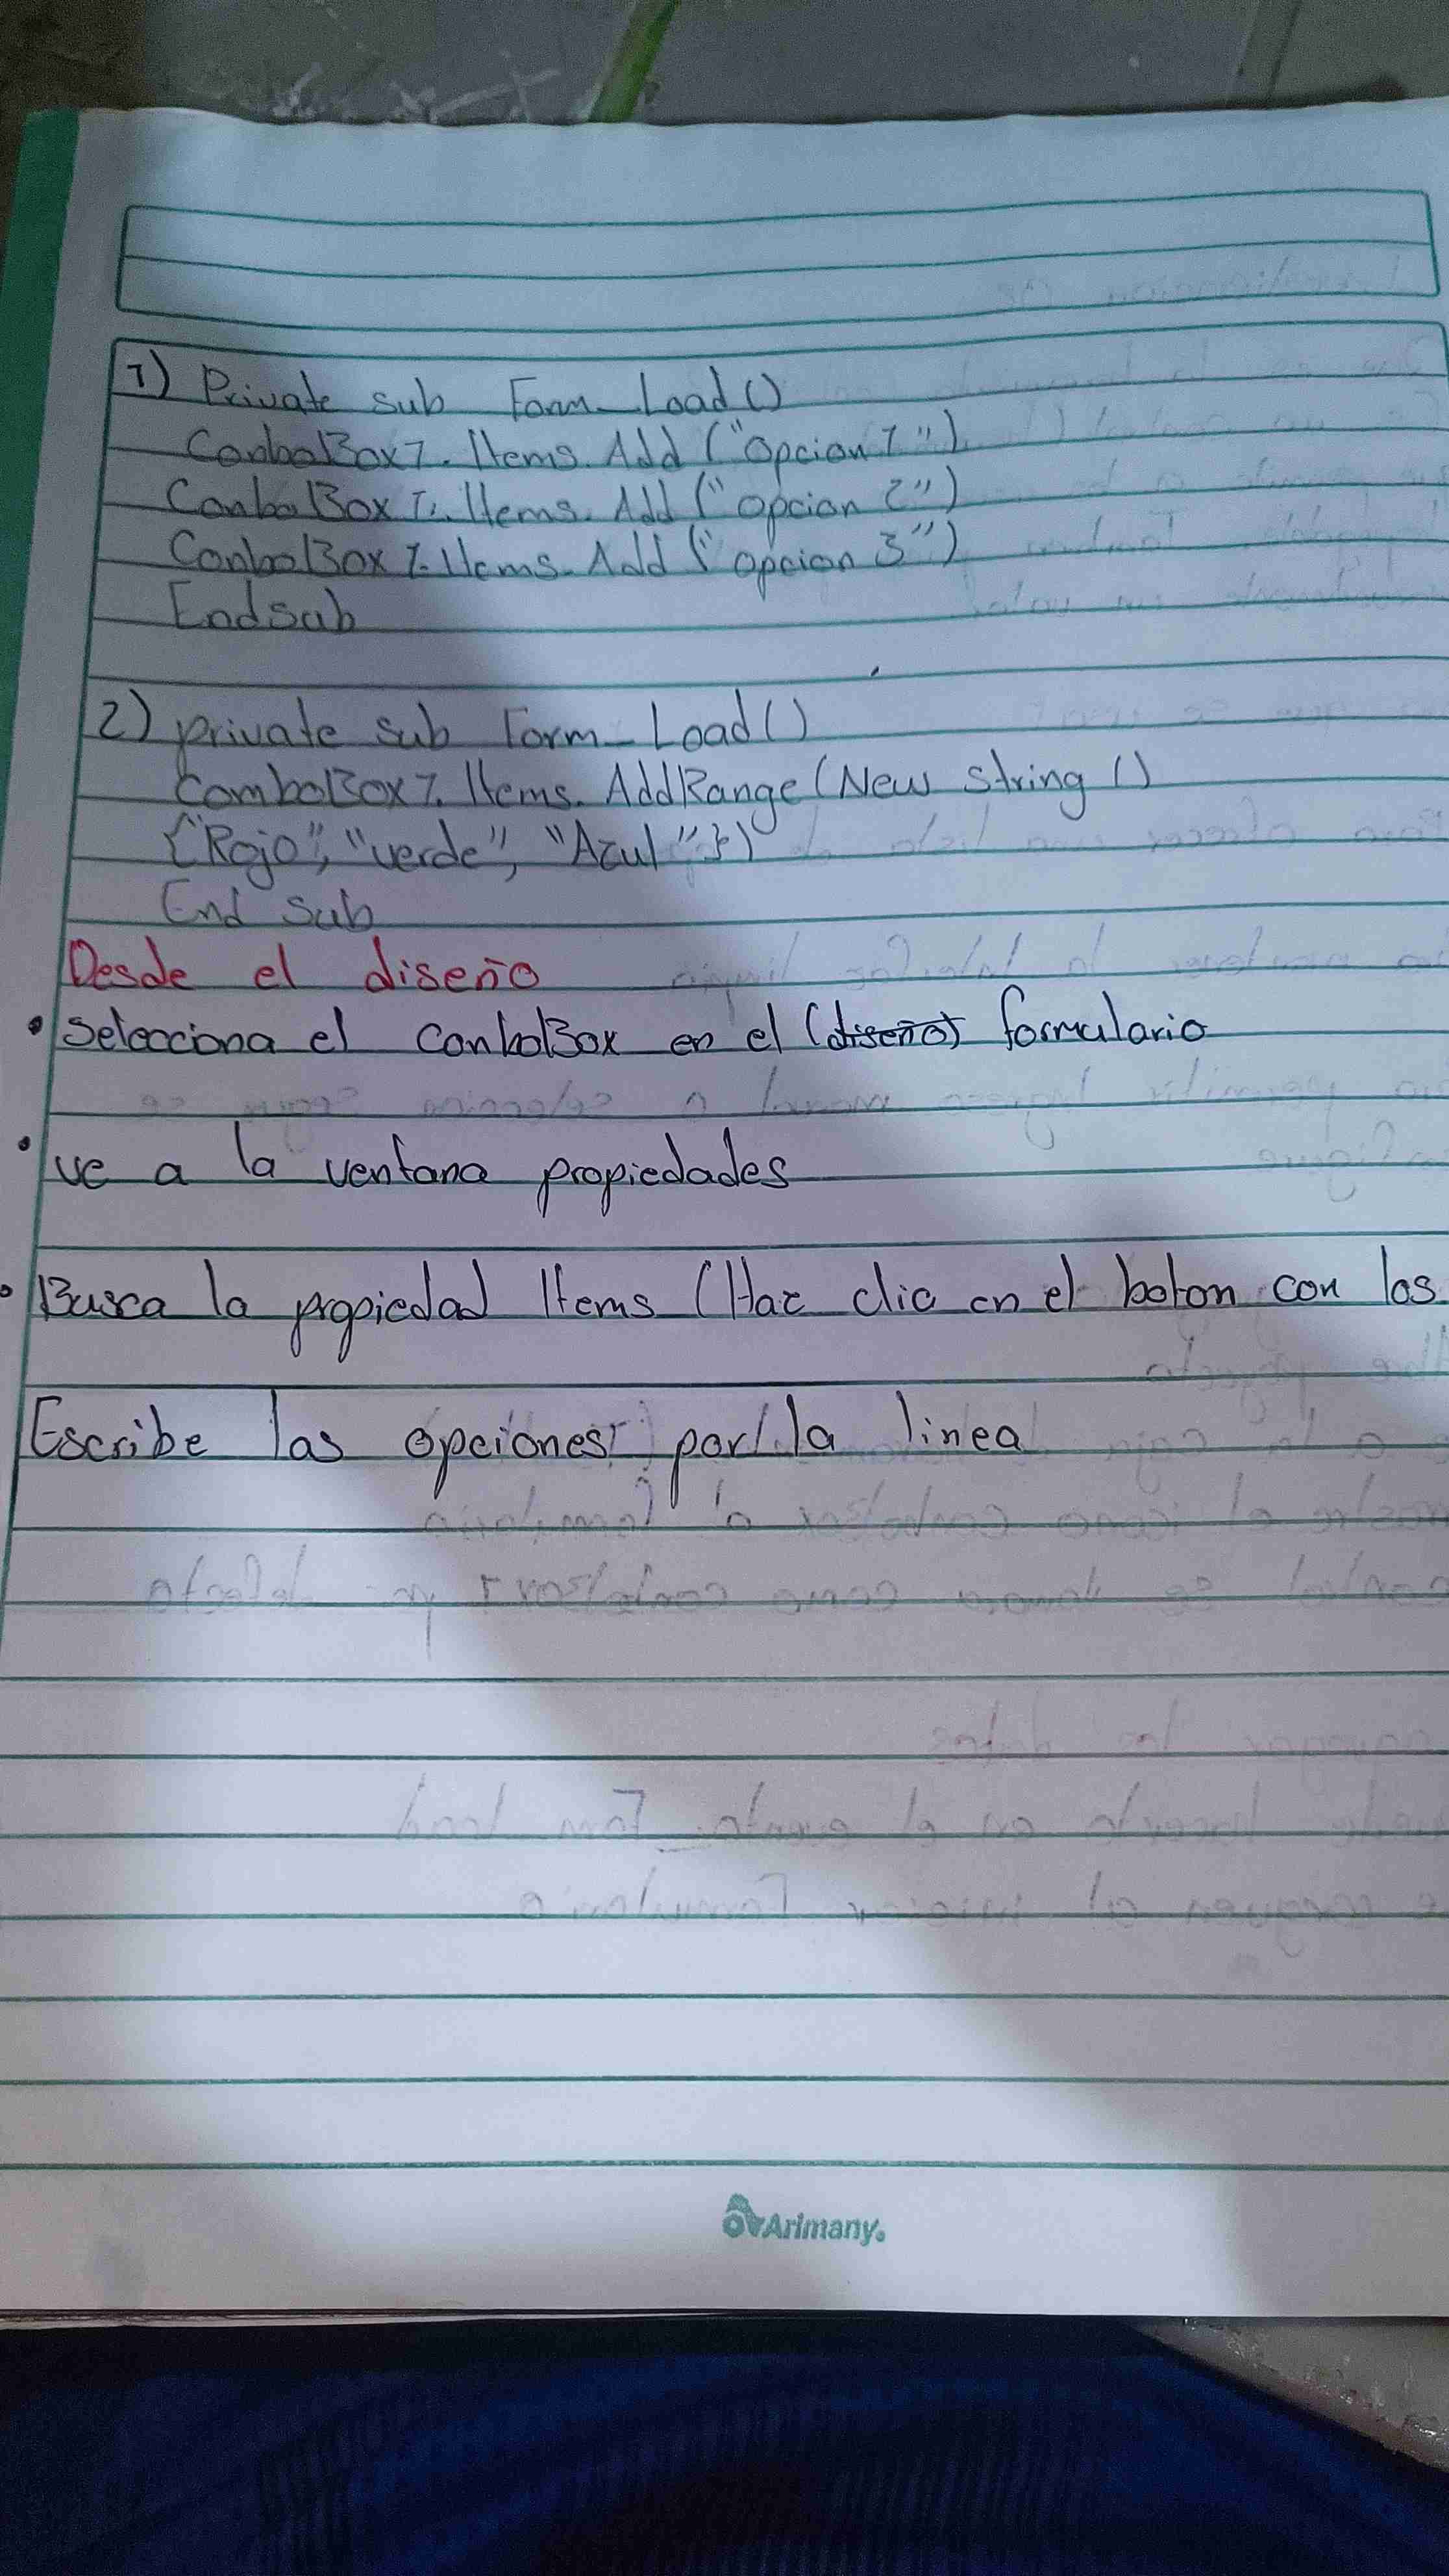 1) Private sub Form_Load()
ConboBox1. Items. Add ("opcion 1")
ConboBox 1. Items. Add ("opcion 2")
ConboBox 1. Items. Add ("opcion 3")
End sub
2) private sub Form_Load()
ComboBox1. Items. AddRange (New string ()
{"Rojo", "verde", "Azul"})
End sub
Desde el diseño
• Selecciona el ConboBox en el (diseño) formulario
• ve a la ventana propiedades
• Busca la propiedad Items (Haz clic en el boton con los
Escribe las opciones por la linea
Arimany